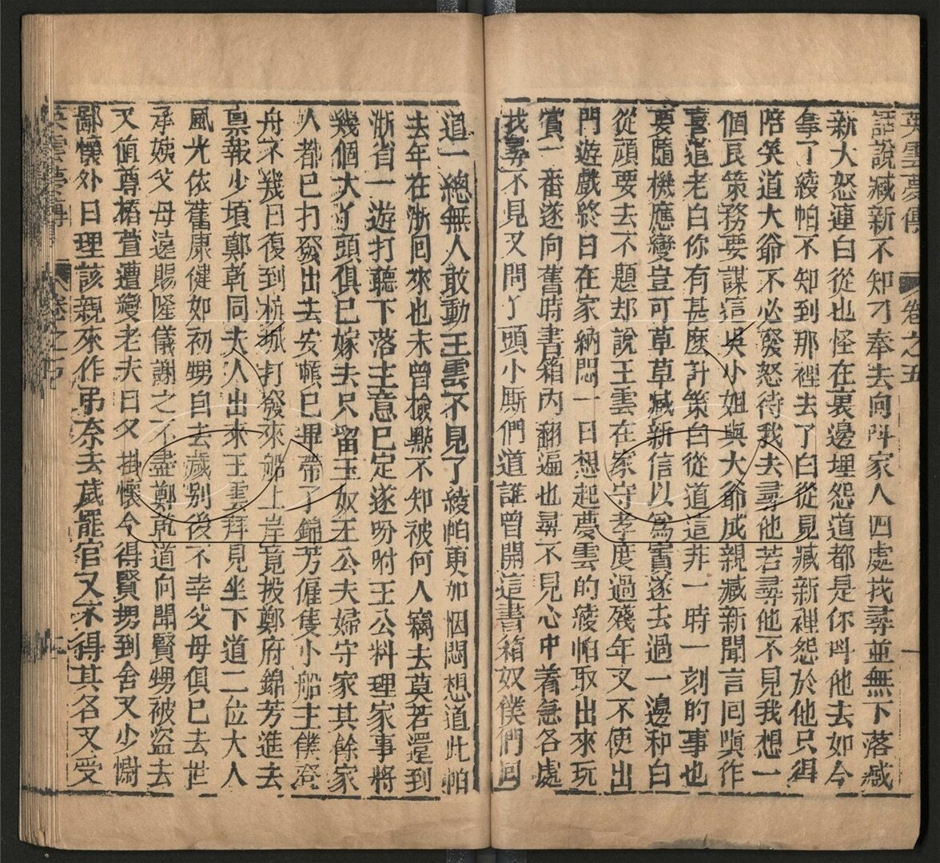 英雲夢傳 卷之五 一
話說臧新不知刁奉去向呌家人四處找尋並無下落臧
新大怒連白從也怪在裏邊埋怨道都是你呌他去如今
拿了綾帕不知到那裡去了白從見臧新裡怨於他只得
陪笑道大爺不必發怒待我去尋他若尋他不見我想一
個良策務要謀這吳小姐與大爺成親臧新聞言回嗔作
喜道老白你有甚麼計策白從道這非一時一刻的事也
要隨機應變豈可草草臧新信以爲實遂去過一邊和白
從頑耍去不題却說王雲在家守孝度過殘年又不使出
門遊戲終日在家納悶一日想起夢雲的綾帕取出來玩
賞一番遂向舊時書箱內翻遍也尋不見心中着急各處
找尋不見又問丫頭小厮們道誰曾開這書箱奴僕們回
道一總無人敢動王雲不見了綾帕更加悃悶想道此帕
去年在浙囘來也未曾檢點不知被何人竊去莫若還到
浙省一遊打聽下落主意已定遂吩咐王公料理家事將
幾個大丫頭俱已嫁去只留玉奴王公夫婦守家其餘家
人都已打發出去安頓已畢帶了錦芳僱隻小船主僕登
舟不幾日復到杭城打發來船上岸竟投鄭府錦芳進去
禀報少頃鄭乾同夫人出來王雲拜見坐下道二位大人
風光依舊康健如初甥自去歲别後不幸父母俱已去世
承姨父母遠賜隆儀謝之不盡鄭乾道向聞賢甥被盜去
又值尊椿萱遭變老夫日夕掛懷今得賢甥到舍又少慰
鄙懷外日理該親來作弔奈去歲罷官又不得其名又受
英雲夢傳 卷之五